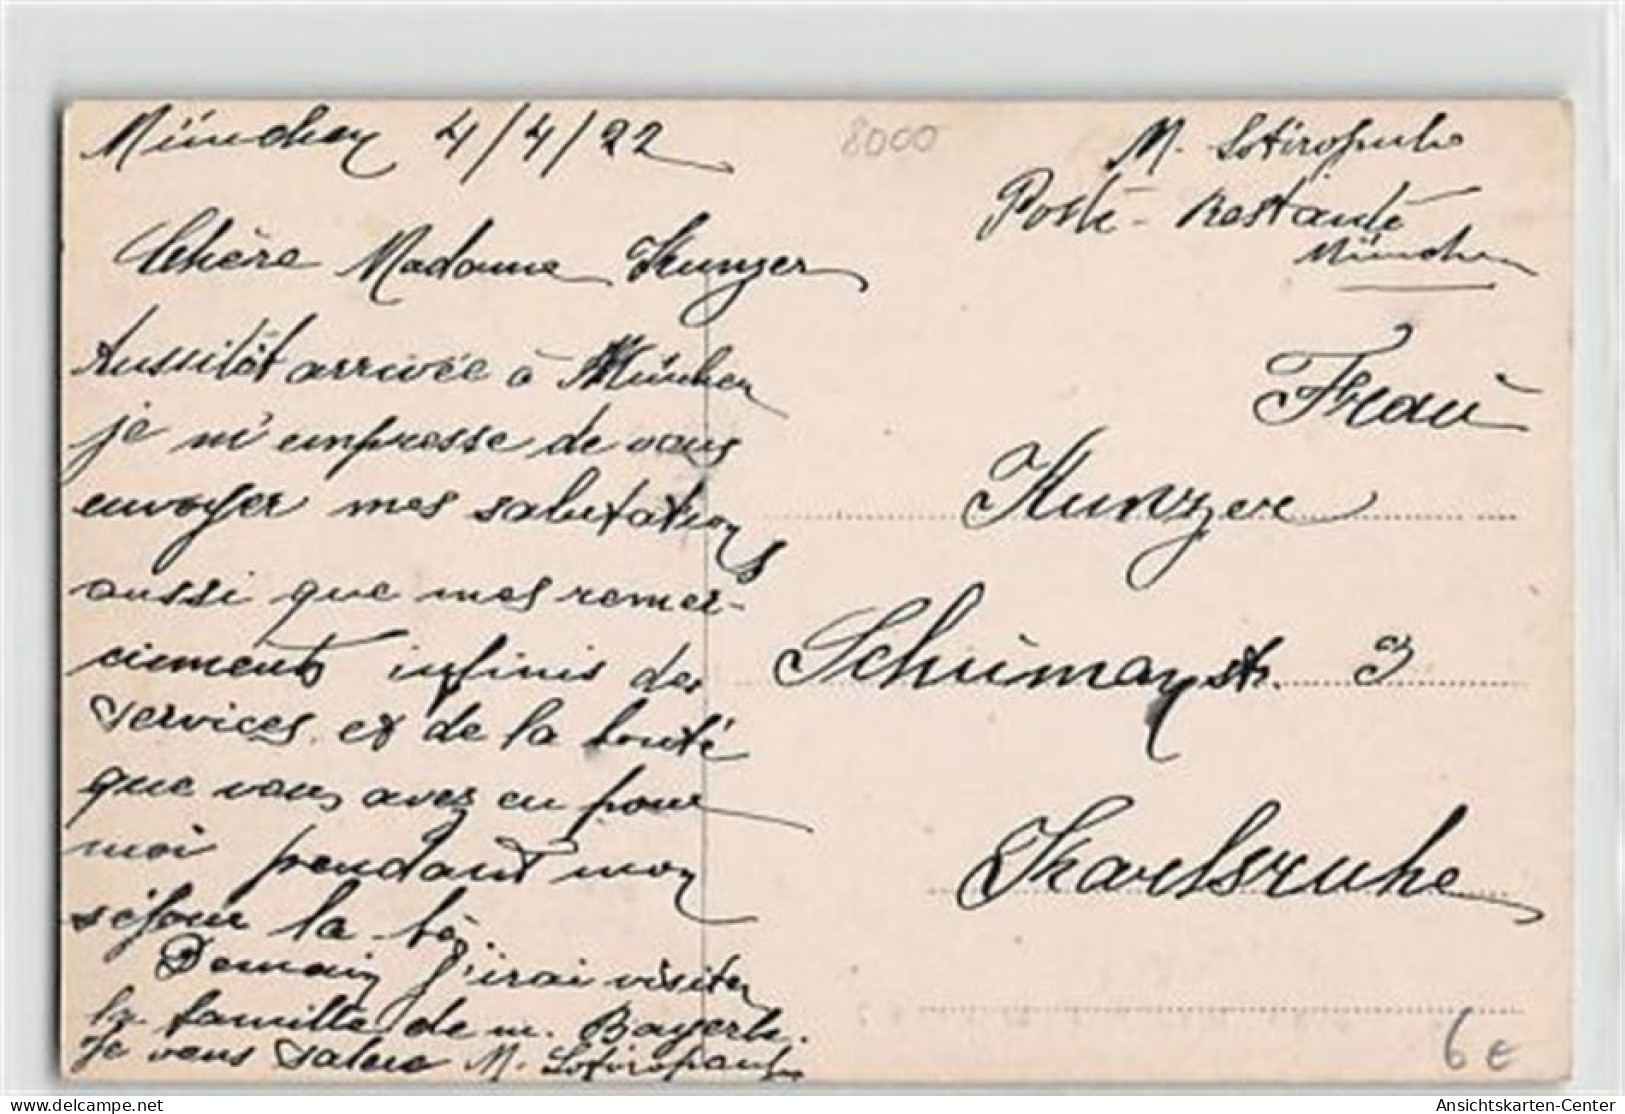 München 4/4/22
Chère Madame Kunzer
Aussitôt arrivée à München
je m'empresse de vous
envoyer mes salutations
aussi que mes remer-
ciements infinis des
services et de la bonté
que vous avez eu pour
moi pendant mon
séjour la-bà.
Demain j'irai visiter
la famille de m. Bayerle.
Je vous salue M. Sotiropoulo
8000
M. Sotiropoulo
Poste-Restante
München
Frau
Kunzer
Schümanstr. 3
Karlsruhe
6 €
www.delcampe.net
Ansichtskarten-Center